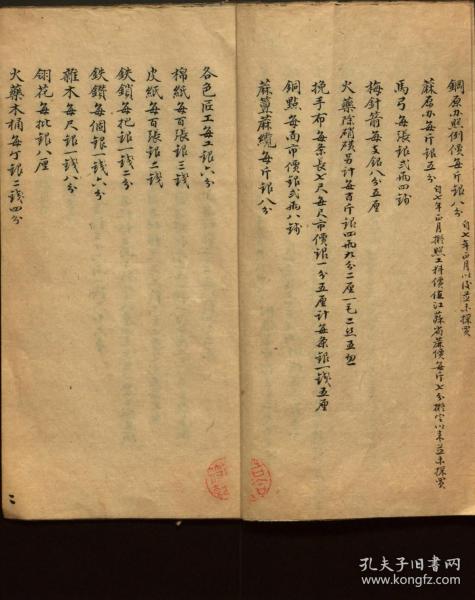 鋼原办照例價每斤銀八分自七年正月以後並未採買
蔴原办每斤銀五分自七年正月擬照工料價值江蘇省蔴價每斤七分擬定以來並未採買
馬弓每張銀弍兩四錢
梅針箭每支銀八分五厘
火藥除硝磺另計每百斤銀四兩九分二厘一毛二丝五忽
挽手布每条長七尺每尺市價銀一分五厘計每条銀一錢五厘
銅點每面市價銀弍兩八錢
蔴蕈蔴纜每斤銀八分
各色匠工每工銀六分
棉紙每百張銀三錢
皮紙每百張銀二錢
鉄鎖每把銀一錢二分
鉄鑽每個銀一錢六分
雜木每尺銀一錢八分
翎花每批銀八厘
火藥木桶每个銀二錢四分
孔夫子旧书网
www.kongfz.com